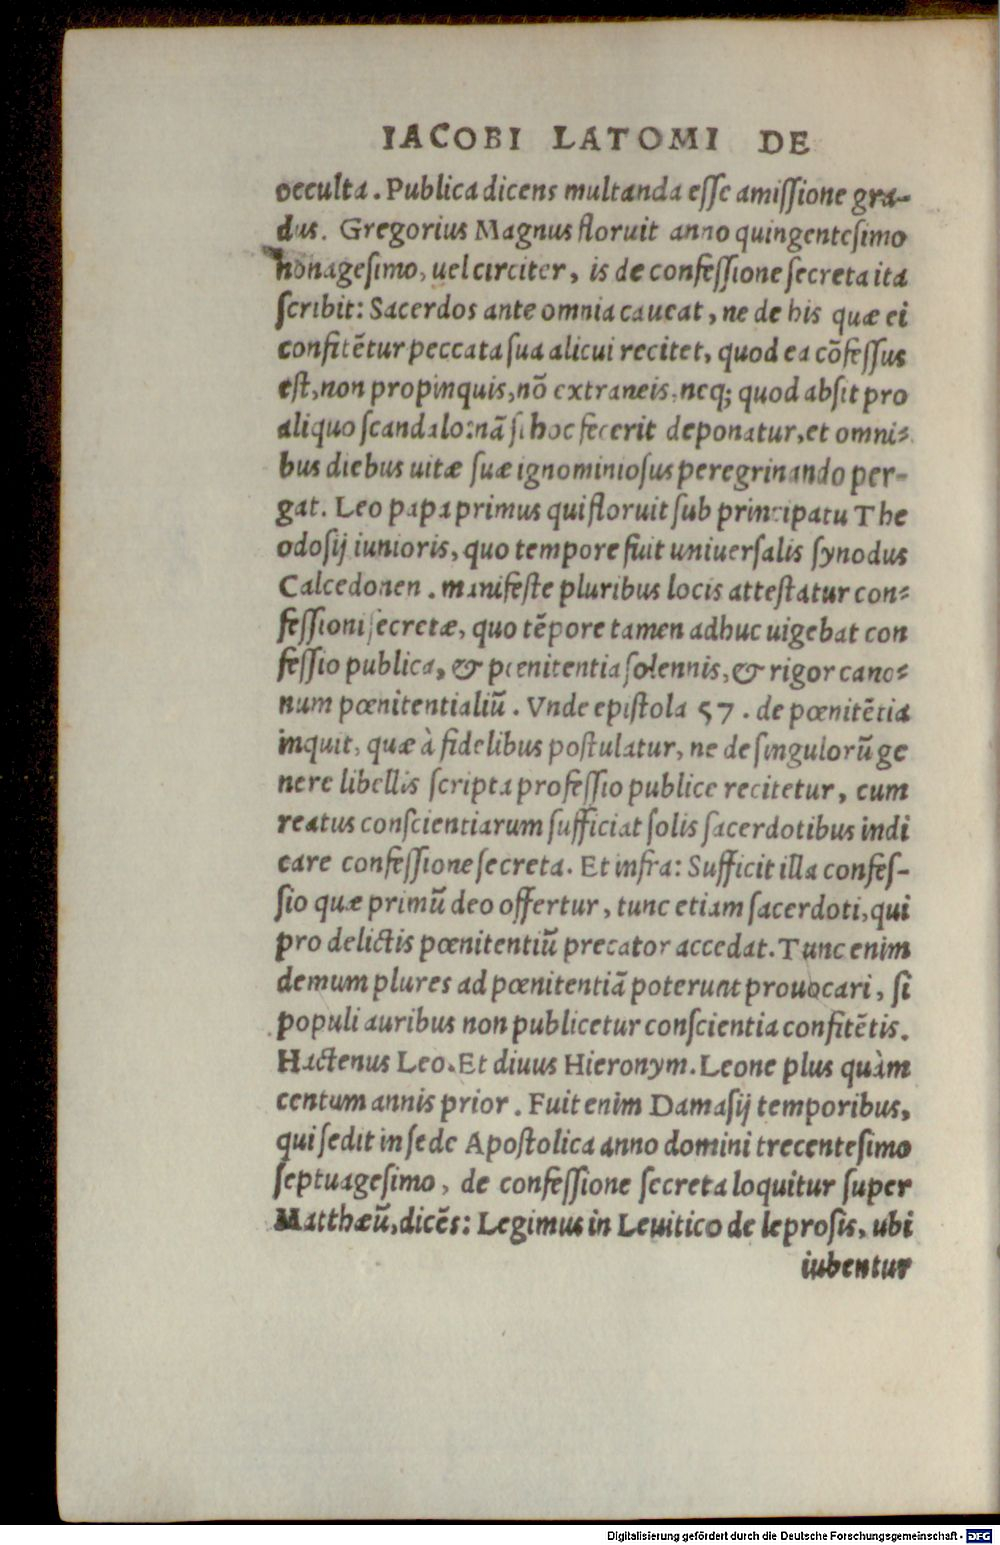 IACOBI LATOMI DE
occulta. Publica dicens multanda esse amissione gra-
dus. Gregorius Magnus floruit anno quingentesimo
nonagesimo, uel circiter, is de confessione secreta ita
scribit: Sacerdos ante omnia caueat, ne de his quæ ei
confitẽtur peccata sua alicui recitet, quod ea cõfessus
est, non propinquis, nõ extraneis, neq; quod absit pro
aliquo scandalo: nã si hoc fecerit deponatur, et omni-
bus diebus uitæ suæ ignominiosus peregrinando per-
gat. Leo papa primus qui floruit sub principatu The
odosij iunioris, quo tempore fuit uniuersalis synodus
Calcedonen. manifeste pluribus locis attestatur con-
fessioni secretæ, quo tẽpore tamen adhuc uigebat con
fessio publica, & pœnitentia solennis, & rigor cano-
num pœnitentialiũ. Vnde epistola 57. de pœnitẽtia
inquit, quæ à fidelibus postulatur, ne de singulorũ ge
nere libellis scripta professio publice recitetur, cum
reatus conscientiarum sufficiat solis sacerdotibus indi
care confessione secreta. Et infra: Sufficit illa confes-
sio quæ primũ deo offertur, tunc etiam sacerdoti, qui
pro delictis pœnitentiũ precator accedat. Tunc enim
demum plures ad pœnitentiã poterunt prouocari, si
populi auribus non publicetur conscientia confitẽtis.
Hactenus Leo. Et diuus Hieronym. Leone plus quàm
centum annis prior. Fuit enim Damasij temporibus,
qui sedit in sede Apostolica anno domini trecentesimo
septuagesimo, de confessione secreta loquitur super
Matthæũ, dicẽs: Legimus in Leuitico de leprosis, ubi
iubentur
Digitalisierung gefördert durch die Deutsche Forschungsgemeinschaft - DFG